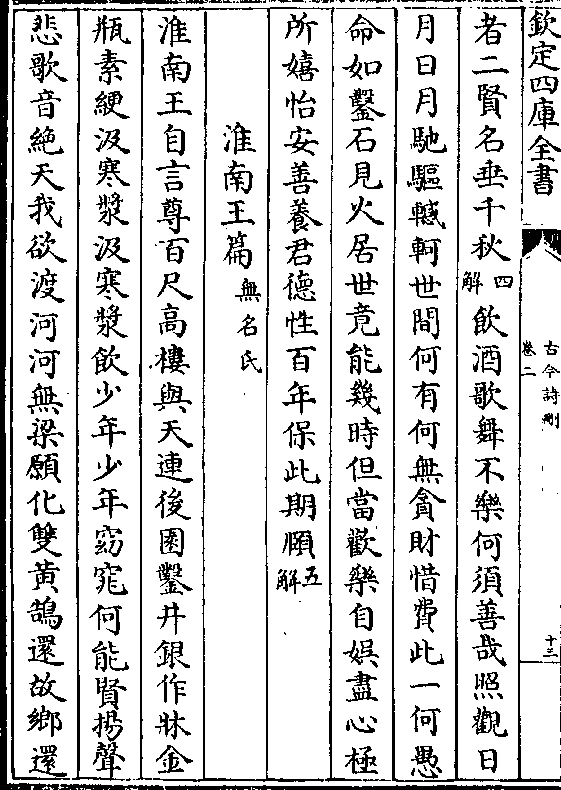 欽定四庫全書
古今詩刪
卷二
十三
者二賢名垂千秋四解飲酒歌舞不樂何須善哉照觀日
月日月馳驅轗軻世間何有何無貪財惜費此一何愚
命如鑿石見火居世竟能幾時但當歡樂自娛盡心極
所嬉怡安善養君德性百年保此期頥五解
淮南王篇無名氏
淮南王自言尊百尺高樓與天連後園鑿井銀作牀金
瓶素綆汲寒漿汲寒漿飲少年少年窈窕何能賢揚聲
悲歌音絶天我欲渡河河無梁願化雙黃鵠還故鄉還